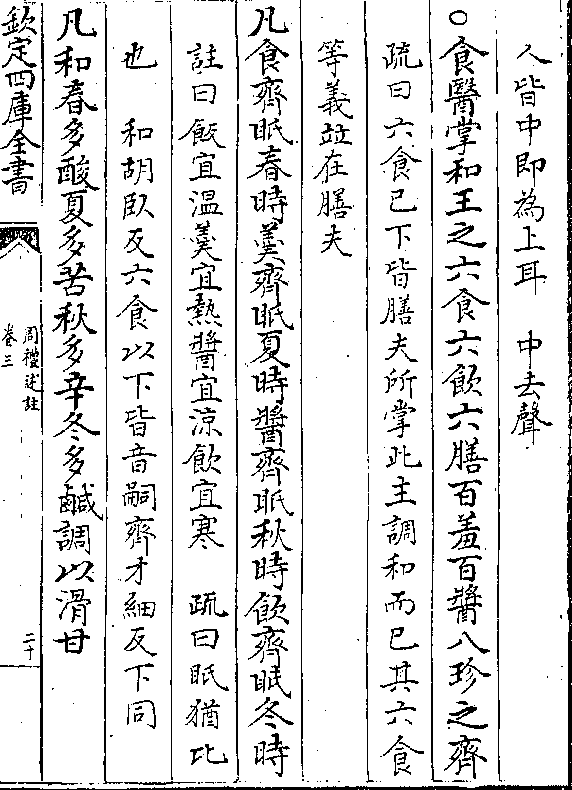 人皆中即為上耳　中去聲
○食醫掌和王之六食六飲六膳百羞百醬八珍之齊
疏曰六食已下皆膳夫所掌此主調和而已其六食
等義竝在膳夫
凡食齊眡春時羹齊眡夏時醬齊眡秋時飲齊眡冬時
註曰飯宜温羹宜熱醬宜涼飲宜寒　疏曰眡猶比
也　和胡臥反六食以下皆音嗣齊才細反下同
凡和春多酸夏多苦秋多辛冬多鹹調以滑甘
欽定四庫全書
周禮述註
卷三
二十